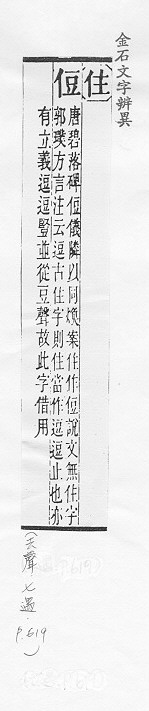 金石文字辨異
住
侸
唐碧落碑侸儀隣以同煥案住作侸說文無住字
郭璞方言注云逗古住字則住當作逗逗止也亦
有立義逗逗豎並從豆聲故此字借用
(去聲.七遇.
p.619)